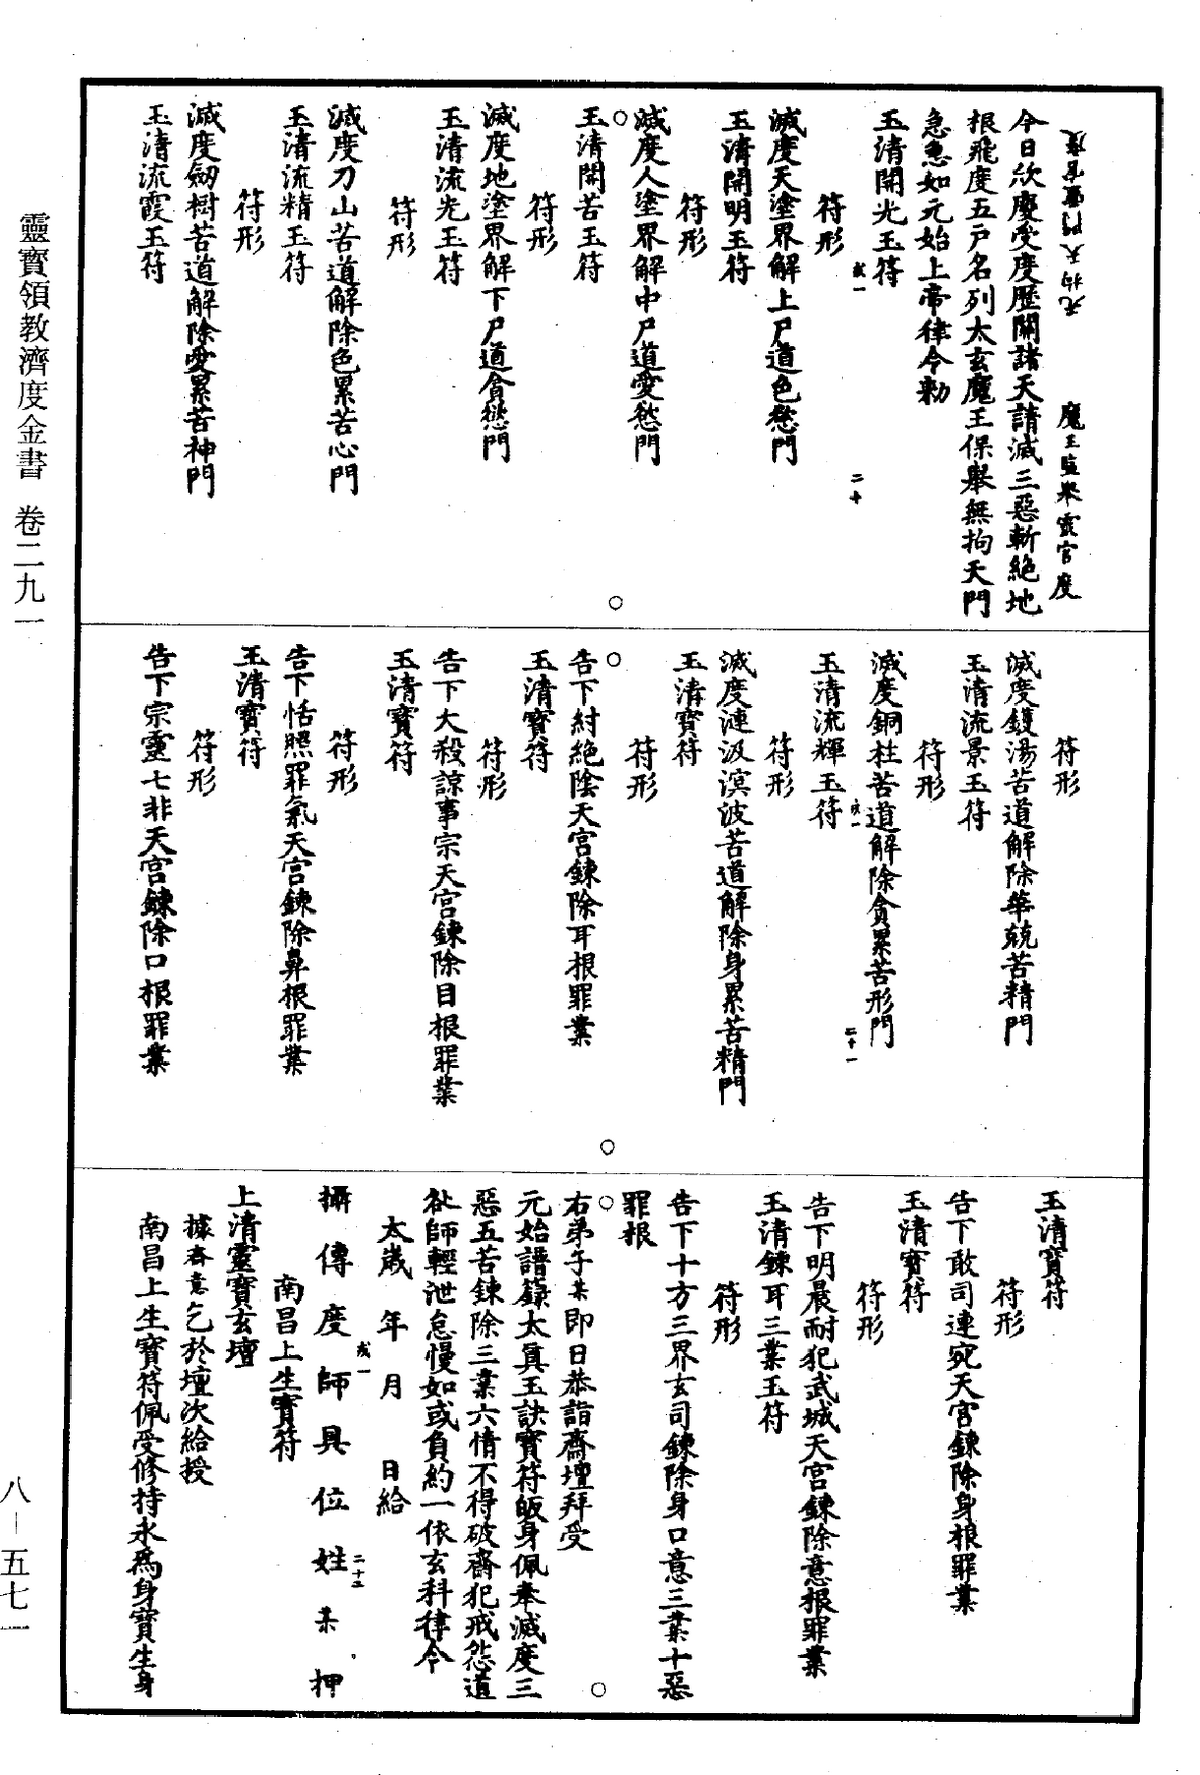 魔王監舉靈官度
今日欣慶受度歷關諸天請滅三惡斬絕地
根飛度五戶名列太玄魔王保舉無拘天門
急急如元始上帝律令勑
玉清開光玉符
二十
符形
滅度天塗界解上尸道色慾門
玉清開明玉符
符形
滅度人塗界解中尸道愛慾門
玉清開苦玉符
符形
滅度地塗界解下尸道貪慾門
玉清流光玉符
符形
滅度刀山苦道解除色累苦心門
玉清流精玉符
符形
滅度劒樹苦道解除愛累苦神門
玉清流霞玉符
符形
滅度鑊湯苦道解除華兢苦精門
玉清流景玉符
符形
滅度銅柱苦道解除貪累苦形門
二十一
玉清流輝玉符
符形
滅度漣汲溟波苦道解除身累苦精門
玉清寶符
符形
告下紂絕陰天宮鍊除耳根罪業
玉清寶符
符形
告下大殺諒事宗天宮鍊除目根罪業
玉清寶符
符形
告下恬照罪氣天宮鍊除鼻根罪業
玉清寶符
符形
告下宗靈七非天宮鍊除口根罪業
玉清寶符
符形
告下敢司連宛天宮鍊除身根罪業
玉清寶符
符形
告下明晨耐犯武城天宮鍊除意根罪業
玉清鍊耳三業玉符
符形
告下十方三界玄司鍊除身口意三業十惡
罪根
右弟子某即日恭詣齋壇拜受
元始譜籙太眞玉訣寶符皈身佩奉滅度三
惡五苦鍊除三業六情不得破齋犯戒怨道
咎師輕泄怠慢如或負約一依玄科律令
太歲 年 月 日給
攝傳度師具位姓某押
二十二
南昌上生寶符
上清靈寶玄壇
據齋意乞於壇次給授
南昌上生寶符佩受修持永爲身寶生身
靈寶領教濟度金書 卷二九一
八—五七一